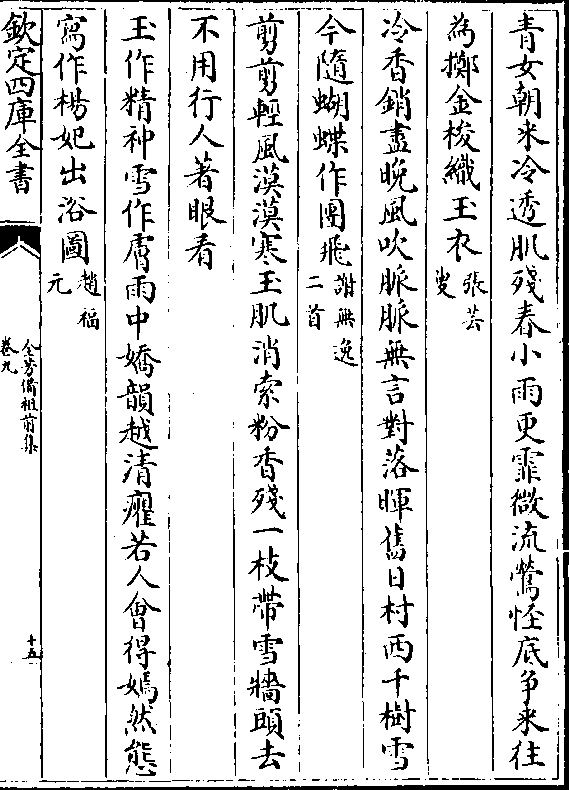 青女朝来冷透肌殘春小雨更霏微流鶯怪底争来往
為擲金梭織玉衣張芸
叟
冷香銷盡晚風吹脈脈無言對落暉舊日村西千樹雪
今隨蝴蝶作團飛謝無逸
二首
剪剪輕風漠漠寒玉肌消索粉香殘一枝帶雪牆頭去
不用行人著眼看
玉作精神雪作膚雨中嬌韻越清癯若人會得嫣然態
寫作楊妃出浴圖趙福
元
欽定四庫全書
全芳備祖前集
卷九
十五